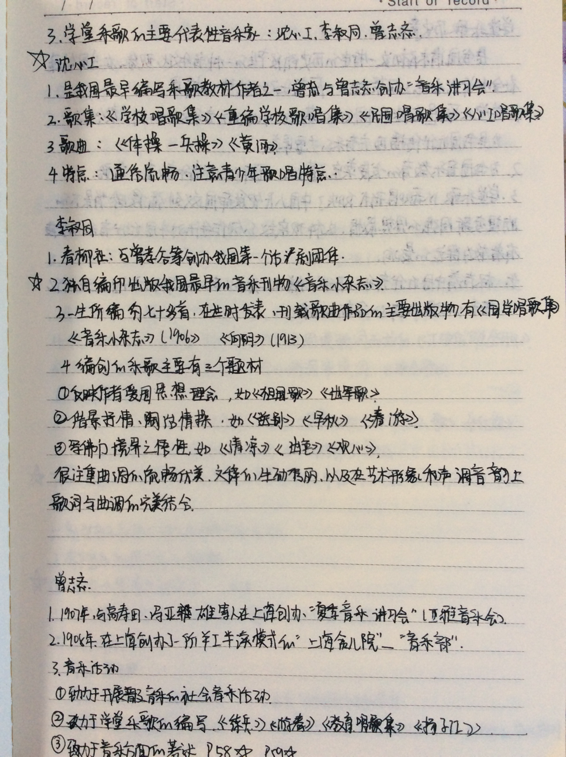 Start of record
3. 学堂乐歌的主要代表性音乐家：沈心工、李叔同、曾志忞.
☆沈心工
1. 是我国最早编写乐歌教材作者之一，曾与曾志忞创办"音乐讲习会"
2. 歌集：《学校唱歌集》《重编学校歌唱集》《民国唱歌集》《心工唱歌集》
3 歌曲：《体操－兵操》《黄河》
4 特点：通俗流畅，注意青少年歌唱特点.
李叔同
1. 春柳社：与曾孝谷等创办我国第一个话剧团体.
☆ 2. 独自编印出版我国最早的音乐刊物《音乐小杂志》
3. 一生所编约七十多首，在此时发表、刊载歌曲作品的主要出版物有《国学唱歌集》
《音乐小杂志》(1906) 《白阳》(1913)
4 编创的乐歌主要有三个题材
①反映作者爱国思想理念，如《祖国歌》《出军歌》
②借景抒情、陶冶情操，如《送别》《早秋》《春游》
③写佛门境界之悟性，如《清凉》《山色》《观心》.
很注重曲调的流畅优美、文体的生动秀丽，以及在艺术形象和声调音韵上
歌词与曲调的完美结合
曾志忞
1. 1907年，与高寿田、冯亚雄等人在上海创办"夏季音乐讲习会"(亚雅音乐会)
2. 1908年，在上海创办一所半工半读模式的"上海贫儿院"—"音乐部".
3. 音乐活动
①致力于开展普及音乐的社会音乐活动
②致力于学堂乐歌的编写《练兵》《游春》《教育唱歌集》《扬子江》
③致力于音乐方面的著述 P58☆ P59☆